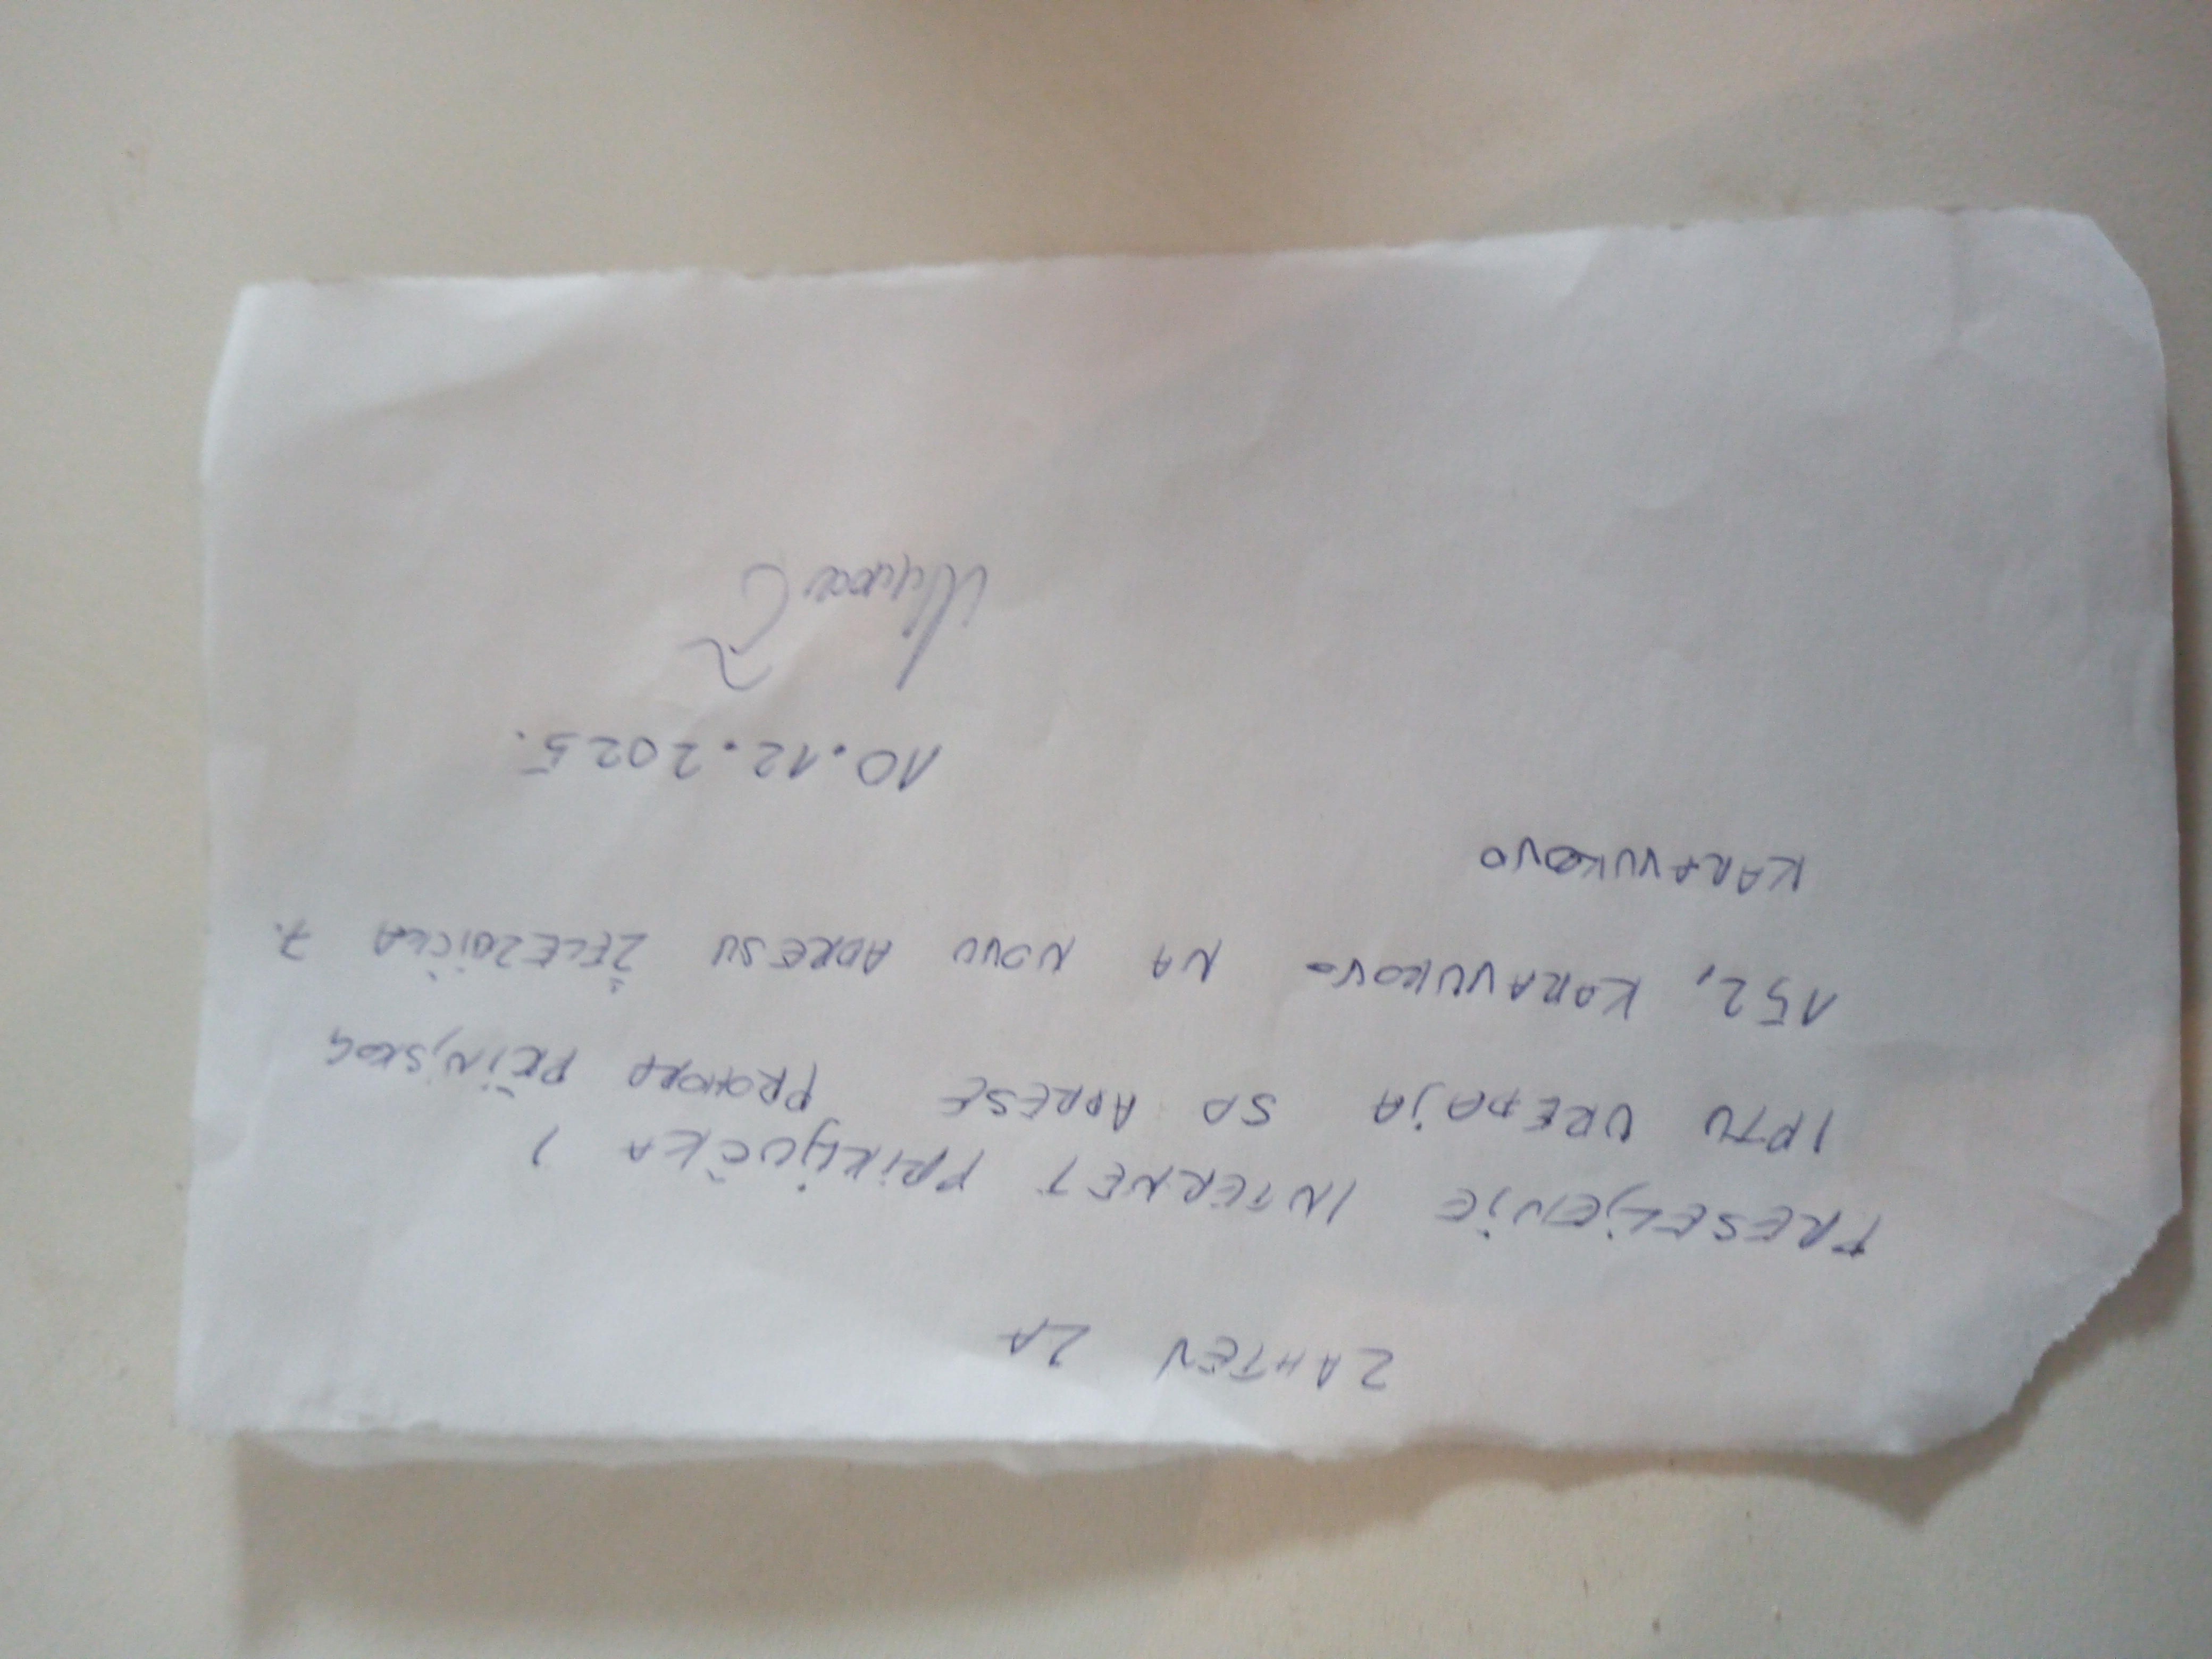 ZAHTEV ZA
PRESELJENJE INTERNET PRIKLJUČKA I
IPTV UREĐAJA SA ADRESE PROHORA PČINJSKOG
152, KARAVUKOVO NA NOVU ADRESU ŽELEZNIČKA 7.
KARAVUKOVO
10.12.2025.